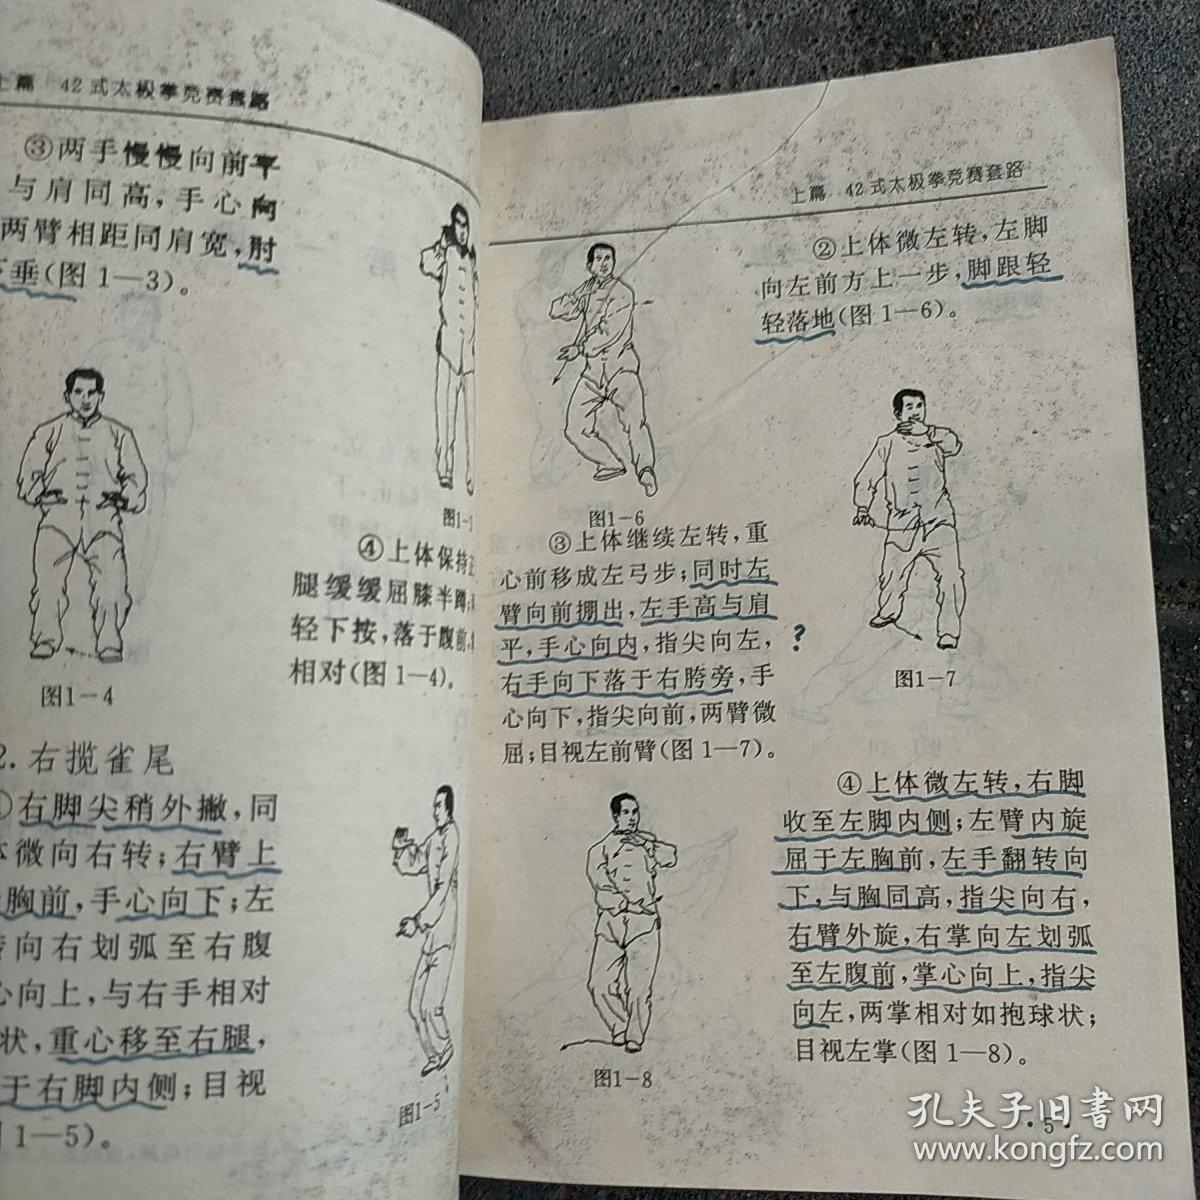 上篇 42式太极拳竞赛套路
③两手慢慢向前平
与肩同高，手心向
两臂相距同肩宽，肘
下垂（图1—3）。
图1-3
图1-4
④上体保持正
腿缓缓屈膝半蹲；
轻下按，落于腹前，
相对（图1—4）。
2.右揽雀尾
①右脚尖稍外撇，同
体微向右转；右臂上
胸前，手心向下；左
向右划弧至右腹
心向上，与右手相对
状，重心移至右腿，
于右脚内侧；目视
图1—5）。
图1-5
上篇 42式太极拳竞赛套路
②上体微左转，左脚
向左前方上一步，脚跟轻
轻落地（图1—6）。
图1-6
③上体继续左转，重
心前移成左弓步；同时左
臂向前掤出，左手高与肩
平，手心向内，指尖向左，
右手向下落于右胯旁，手
心向下，指尖向前，两臂微
屈；目视左前臂（图1—7）。
?
图1-7
④上体微左转，右脚
收至左脚内侧；左臂内旋
屈于左胸前，左手翻转向
下，与胸同高，指尖向右，
右臂外旋，右掌向左划弧
至左腹前，掌心向上，指尖
向左，两掌相对如抱球状；
目视左掌（图1—8）。
图1-8
·5·
孔夫子旧书网
www.kongfz.com